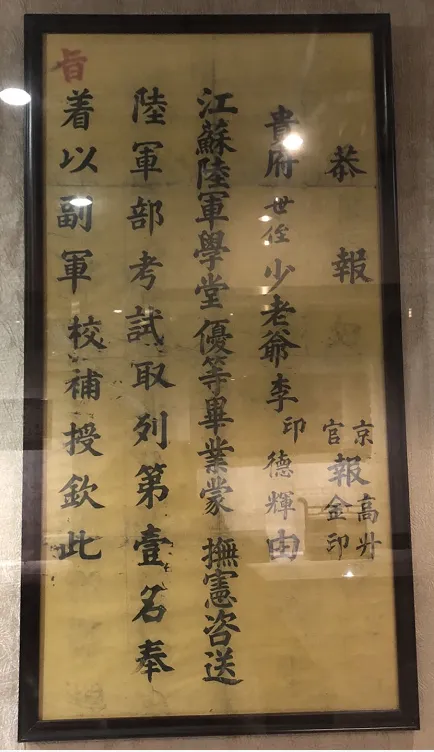 恭報 京官報高升金印
貴府世侄少老爺李印德輝由
江蘇陸軍學堂優等畢業蒙 撫憲咨送
陸軍部考試取列第壹名奉
旨着以副軍校補授欽此